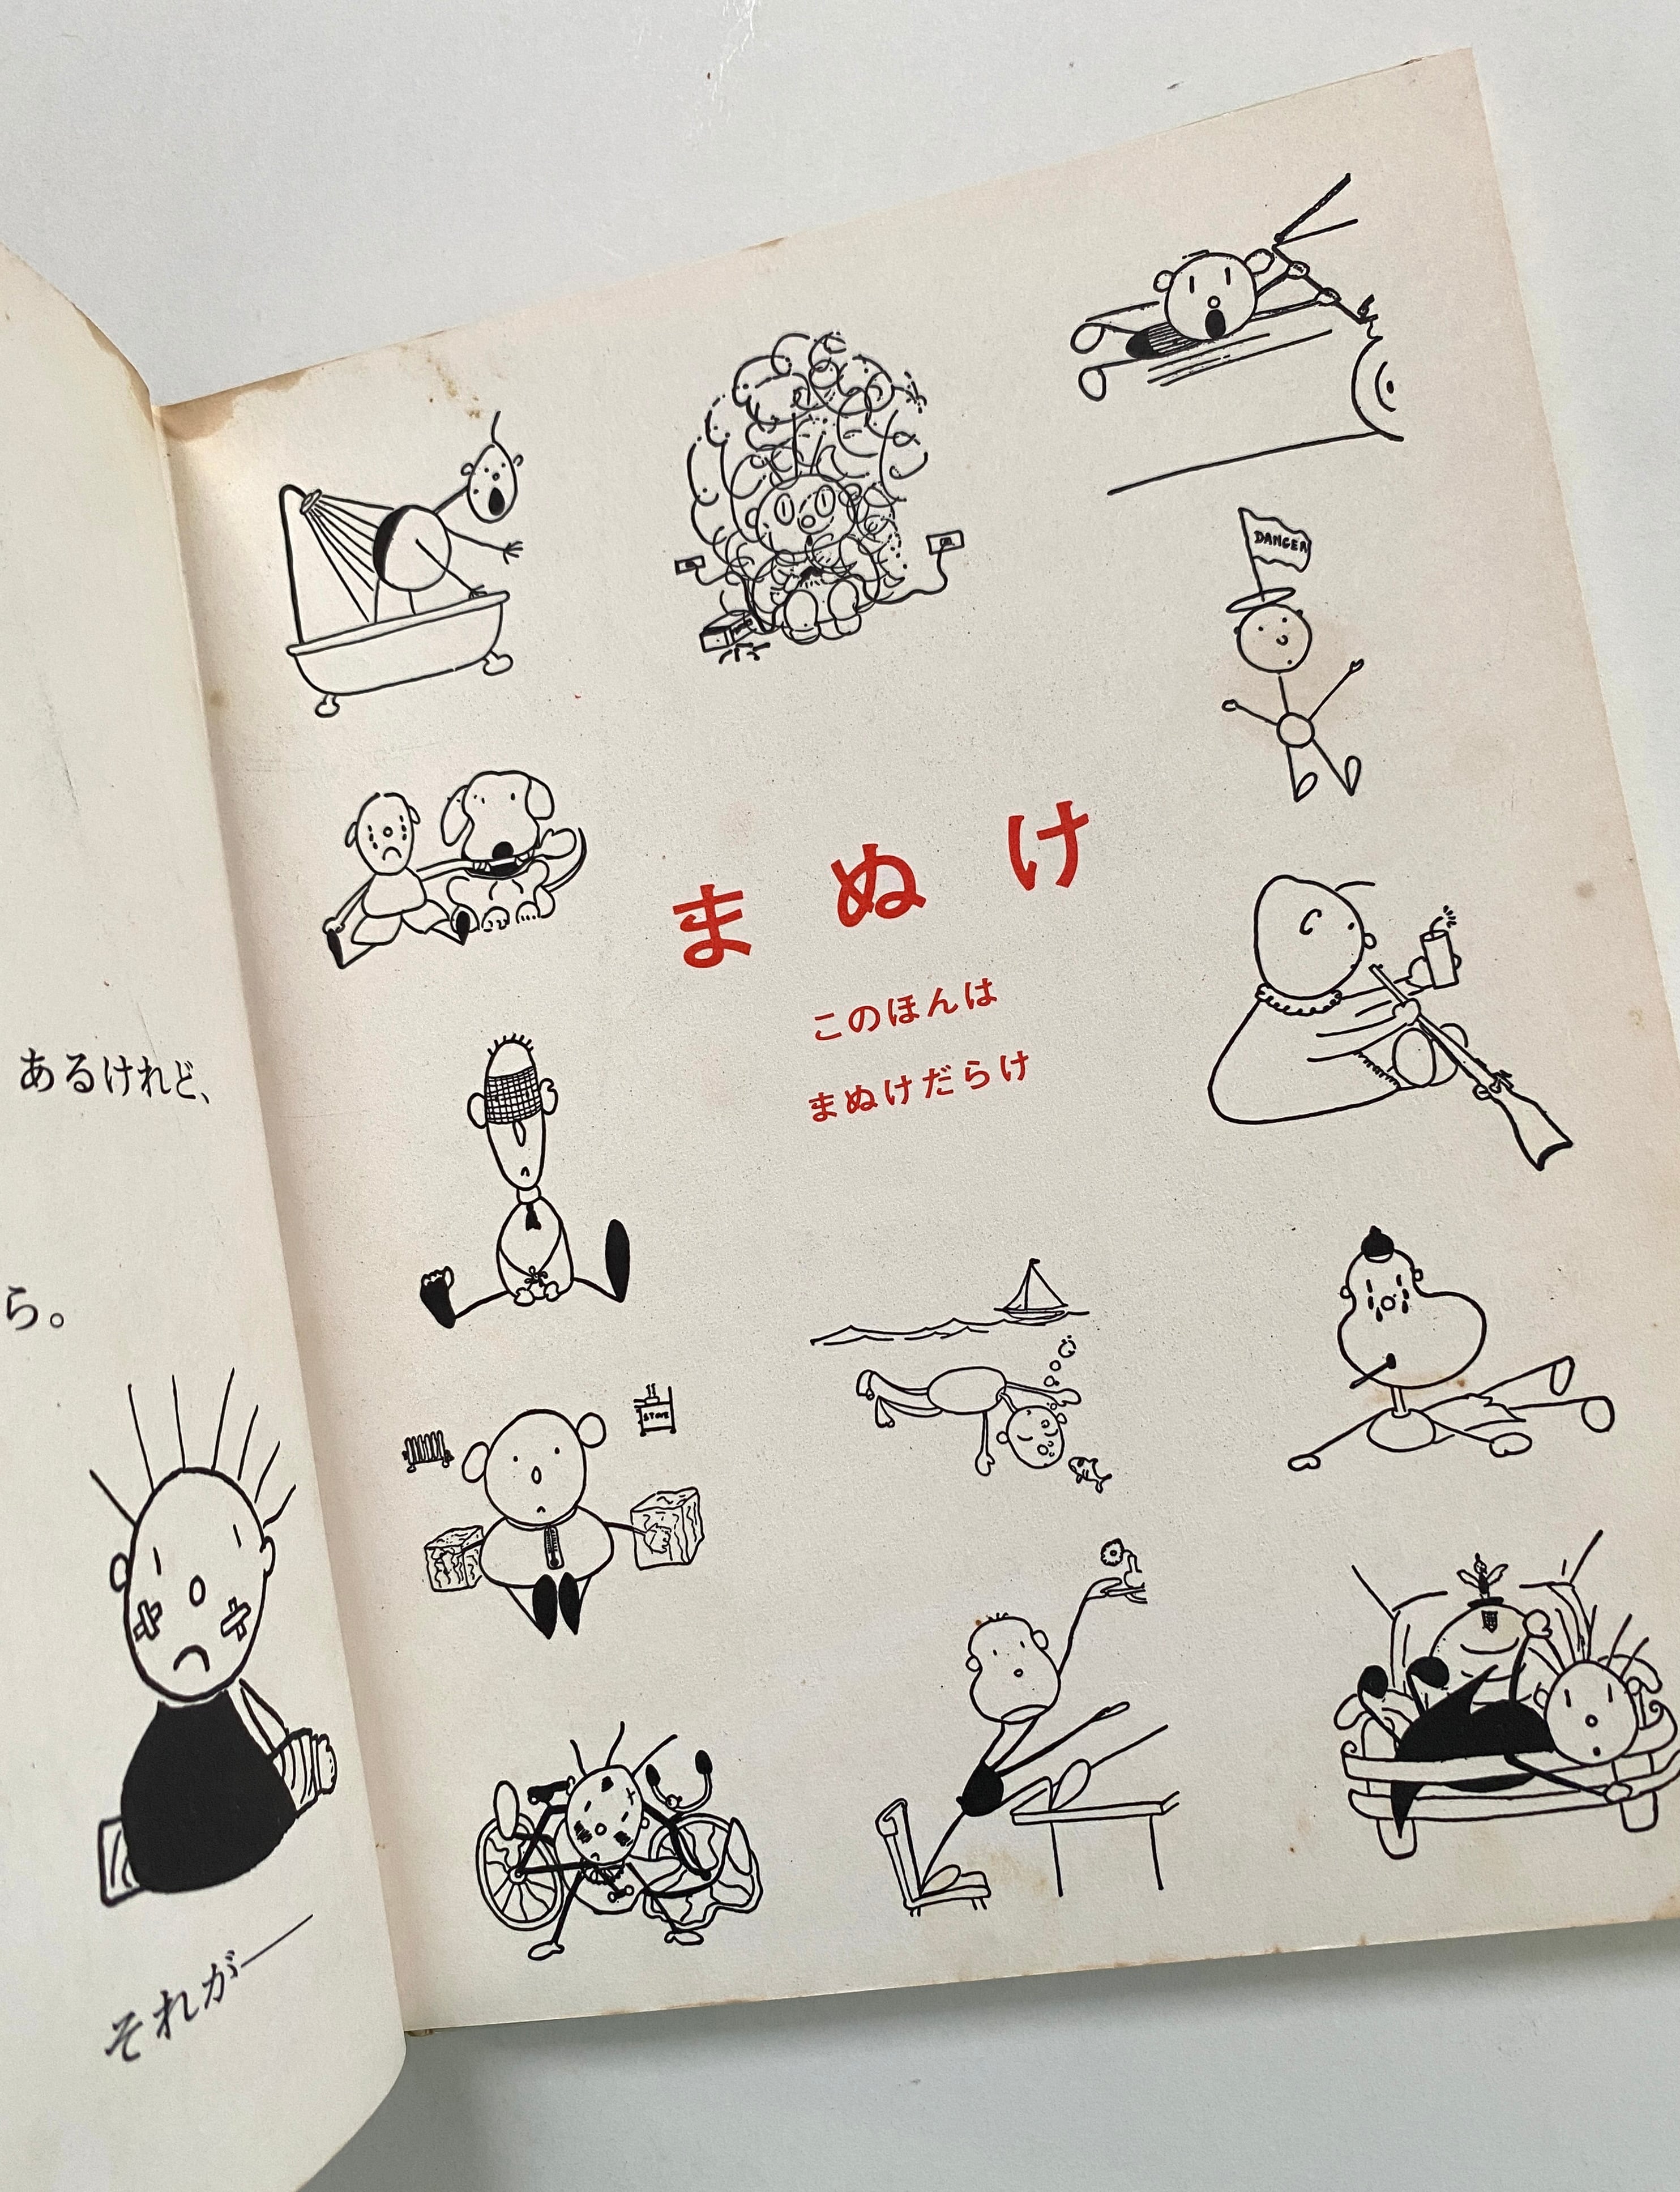 あるけれど、
ら。
それが―
DANGER
まぬけ
このほんは
まぬけだらけ
STOVE